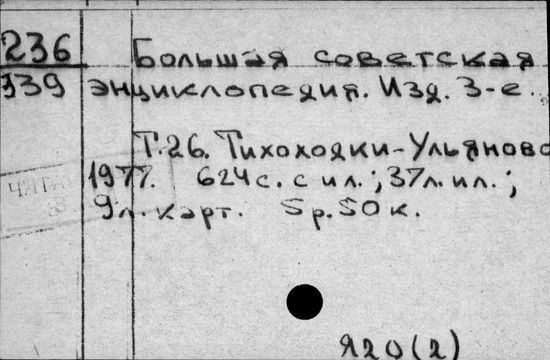 236
939
Большая советская
энциклопедия. Изд. 3-е.
Т.26. Тихоходки-Ульяново
1977. 624с. с ил.; 37л. ил.;
9л. карт. 5р.50к.
Я20(2)